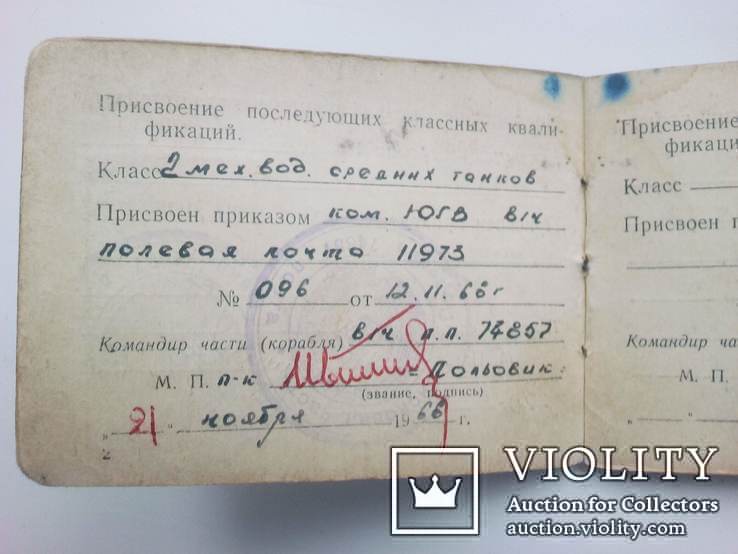 Присвоение последующих классных квали-
фикаций.
Класс 2 мех. вод. средних танков
Присвоен приказом ком. ЮГВ в/ч
полевая почта 11973
№ 096 от 12.11.66 г
Командир части (корабля) в/ч п.п. 74857
М. П. п-к Польовик
(звание, подпись)
„21" ноября 1966 г.
2
Присвоение
фикаци
Класс
Присвоен п
Командир ча
М. П.
VIOLITY
Auction for Collectors
auction.violity.com